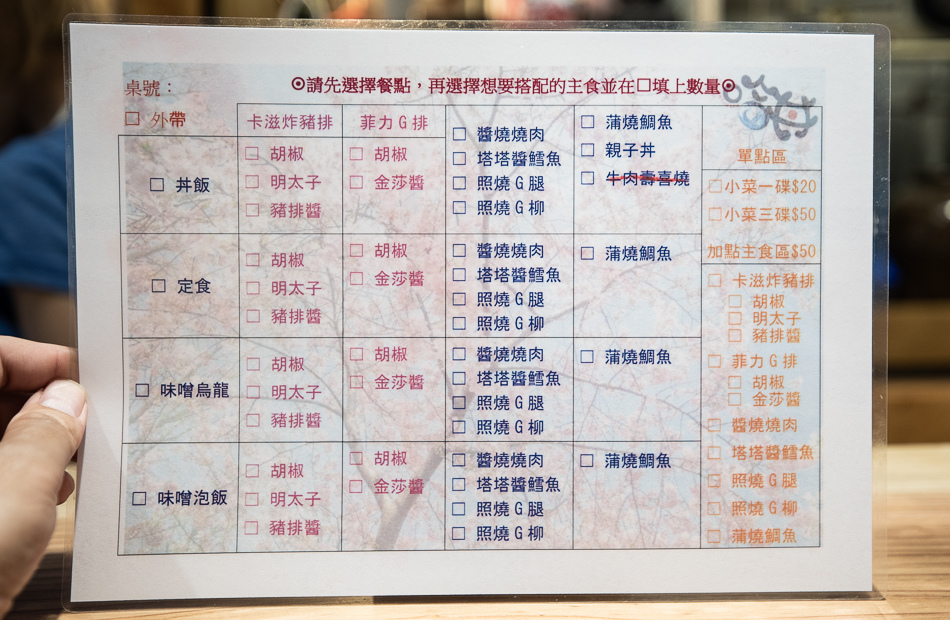 桌號：
⊙請先選擇餐點，再選擇想要搭配的主食並在□填上數量⊙
□ 外帶
卡滋炸豬排
菲力G排
□ 丼飯
□ 胡椒
□ 明太子
□ 豬排醬
□ 胡椒
□ 金莎醬
□ 醬燒燒肉
□ 塔塔醬鱈魚
□ 照燒G腿
□ 照燒G柳
□ 蒲燒鯛魚
□ 親子丼
□ 牛肉壽喜燒
□ 定食
□ 胡椒
□ 明太子
□ 豬排醬
□ 胡椒
□ 金莎醬
□ 醬燒燒肉
□ 塔塔醬鱈魚
□ 照燒G腿
□ 照燒G柳
□ 蒲燒鯛魚
□ 味噌烏龍
□ 胡椒
□ 明太子
□ 豬排醬
□ 胡椒
□ 金莎醬
□ 醬燒燒肉
□ 塔塔醬鱈魚
□ 照燒G腿
□ 照燒G柳
□ 蒲燒鯛魚
□ 味噌泡飯
□ 胡椒
□ 明太子
□ 豬排醬
□ 胡椒
□ 金莎醬
□ 醬燒燒肉
□ 塔塔醬鱈魚
□ 照燒G腿
□ 照燒G柳
□ 蒲燒鯛魚
單點區
□小菜一碟$20
□小菜三碟$50
加點主食區$50
□ 卡滋炸豬排
□ 胡椒
□ 明太子
□ 豬排醬
□ 菲力G排
□ 胡椒
□ 金莎醬
□ 醬燒燒肉
□ 塔塔醬鱈魚
□ 照燒G腿
□ 照燒G柳
□ 蒲燒鯛魚